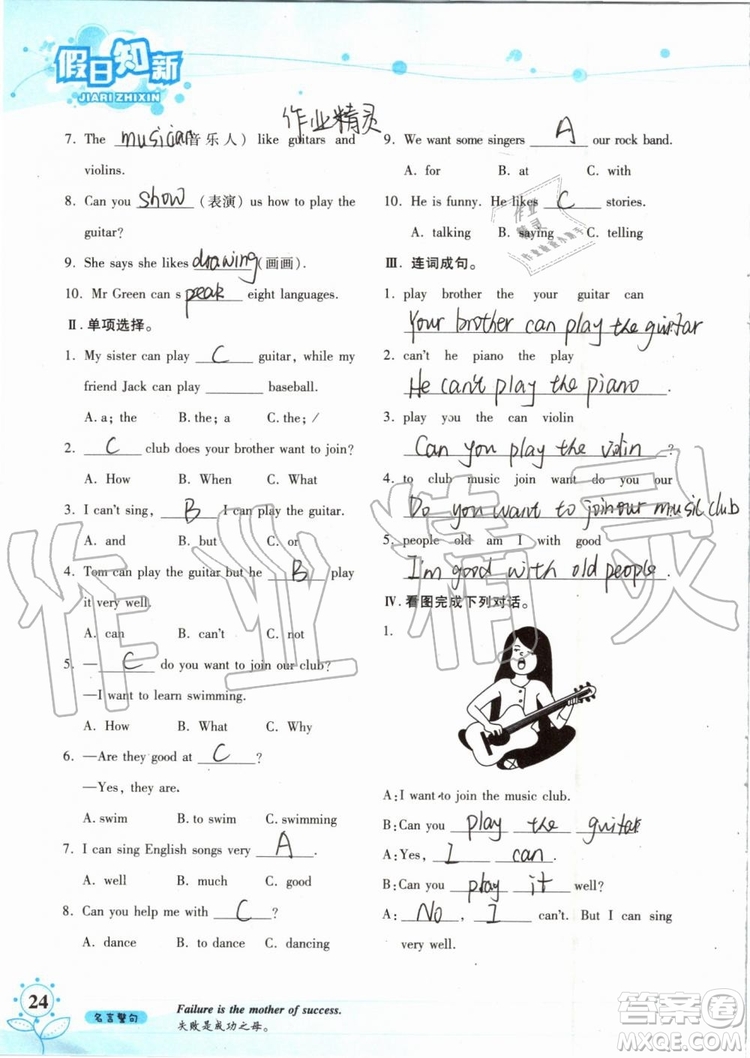 假日知新
JIARI ZHIXIN
作业精灵
7. The musician(音乐人) like guitars and
violins.
8. Can you show (表演) us how to play the
guitar?
9. She says she likes drawing(画画).
10. Mr Green can speak eight languages.
Ⅱ. 单项选择。
1. My sister can play C guitar, while my
friend Jack can play ______ baseball.
A. a; the B. the; a C. the; /
2. C club does your brother want to join?
A. How B. When C. What
3. I can't sing, B I can play the guitar.
A. and B. but C. or
4. Tom can play the guitar but he B play
it very well.
A. can B. can't C. not
5. — C do you want to join our club?
—I want to learn swimming.
A. How B. What C. Why
6. —Are they good at C ?
—Yes, they are.
A. swim B. to swim C. swimming
7. I can sing English songs very A .
A. well B. much C. good
8. Can you help me with C ?
A. dance B. to dance C. dancing
9. We want some singers A our rock band.
A. for B. at C. with
10. He is funny. He likes C stories.
A. talking B. saying C. telling
Ⅲ. 连词成句。
1. play brother the your guitar can
Your brother can play the guitar
2. can't he piano the play
He can't play the piano .
3. play you the can violin
Can you play the violin ?
4. to club music join want do you our
Do you want to join our music club
5. people old am I with good
I'm good with old people .
Ⅳ. 看图完成下列对话。
1.
A: I want to join the music club.
B: Can you play the guitar
A: Yes, I can .
B: Can you play it well?
A: No , I can't. But I can sing
very well.
24
名言警句
Failure is the mother of success.
失败是成功之母。
作业精灵
答案圈
MXQE.COM